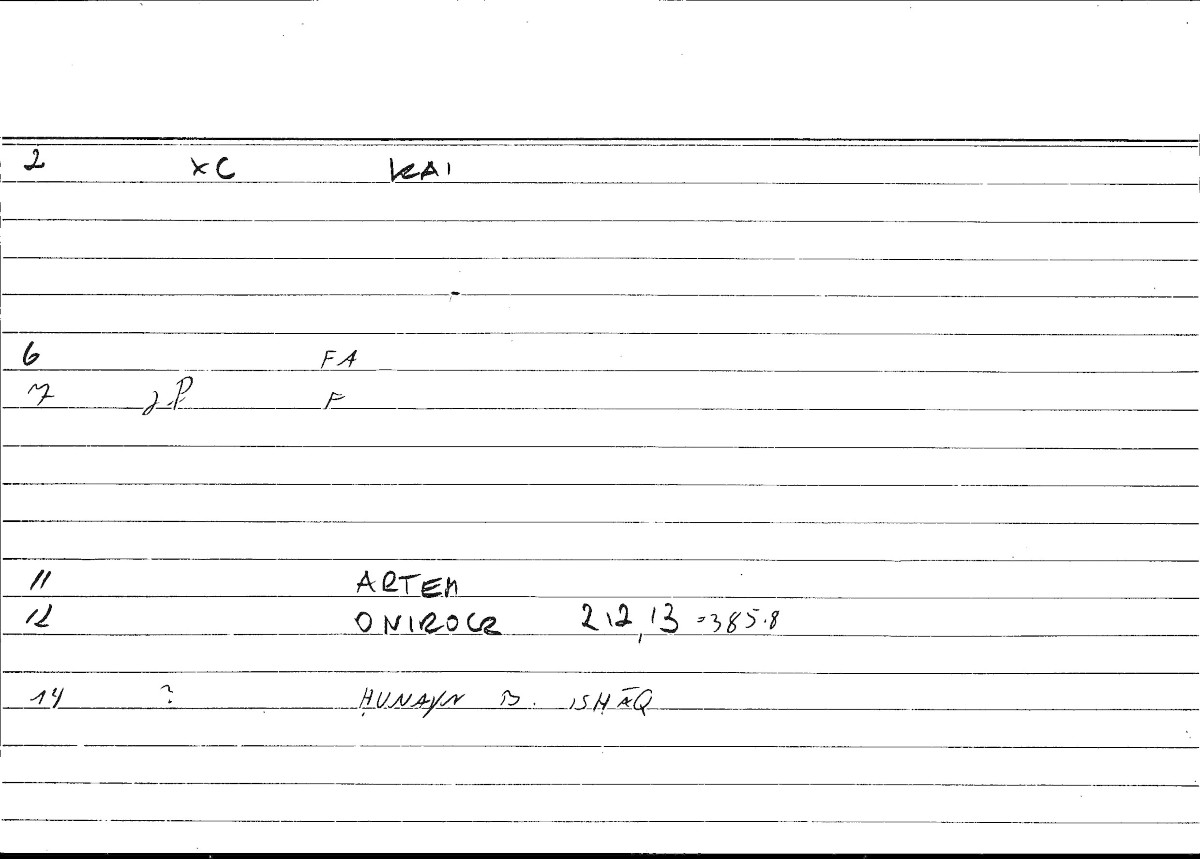 2 XC KAI
6 FA
7 2P F
11 ARTEM
12 ONIROCR 212,13 =385.8
14 ? ḤUNAYN B. ISḤĀQ